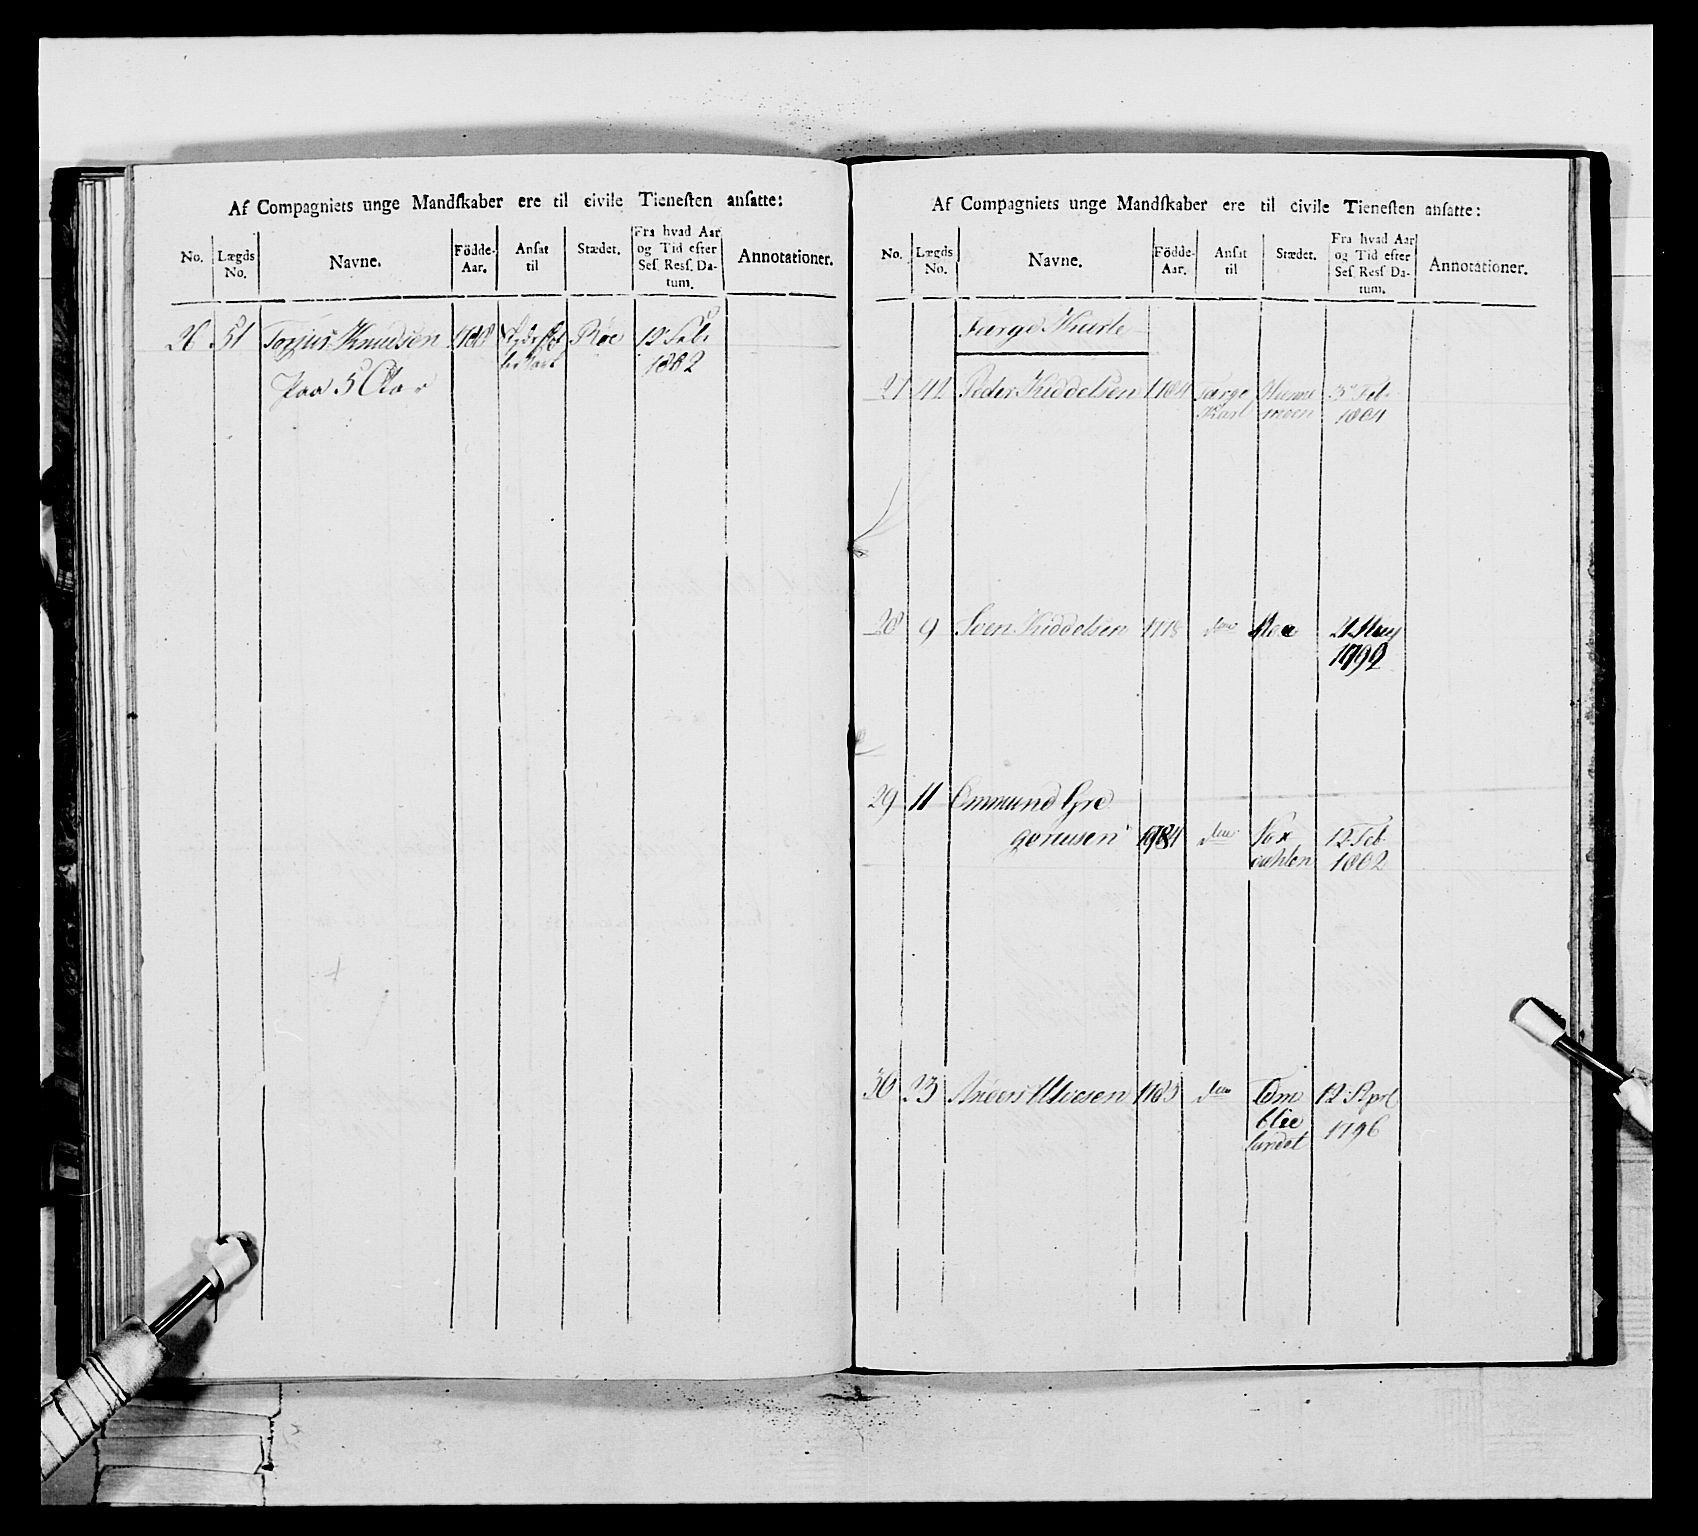 Af Compagniets unge Mandſkaber ere til civile Tieneſten anſatte:
No. Lægds No. Navne. Födde-Aar. Anſat til Stædet. Fra hvad Aar og Tid efter Seſ. Reſſ. Datum. Annotationer.
26 51 Torjus Knudsen Röe 12 Feb.
1802
paa 5 Aar
Af Compagniets unge Mandſkaber ere til civile Tieneſten anſatte:
No. Lægds No. Navne. Födde-Aar. Anſat til Stædet. Fra hvad Aar og Tid efter Seſ. Reſſ Datum. Annotationer.
Færge Karle
27 41 Peder Kiddelsen 1784 Færge 3 Feb.
Karl moen 1804
28 9 Sven Kiddelsen do Moe 21 May
1799
29 11 Ommund Gre
goriusen 1784 do Fox 12 Feb
1802
30 23 Anders Alvesen do 12 Apol
landet 1796